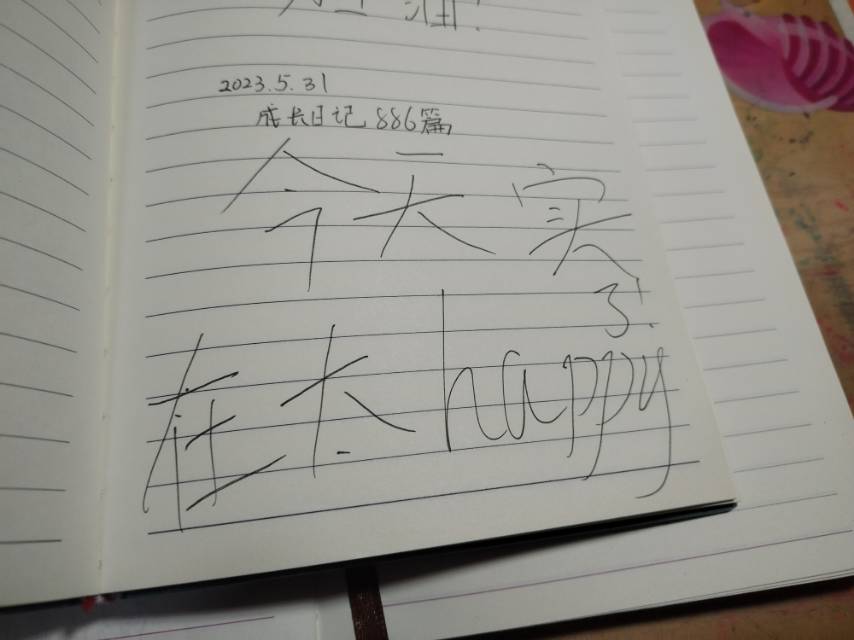 2023.5.31
成长日记 886篇
今天实
在太happy
了!